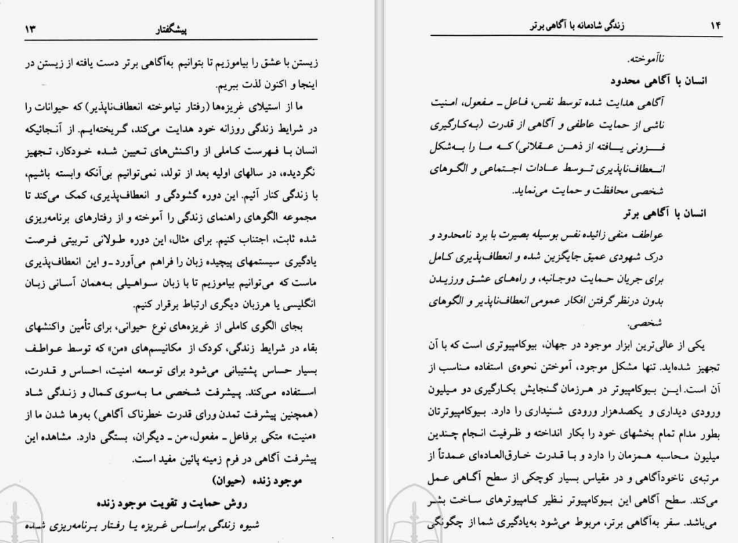 پیشگفتار ۱۳
زیستن با عشق را بیاموزیم تا بتوانیم به‌آگاهی برتر دست یافته از زیستن در
اینجا و اکنون لذت ببریم.
ما از استیلای غریزه‌ها (رفتار نیاموخته انعطاف‌ناپذیر) که حیوانات را
در شرایط زندگی روزانه خود هدایت می‌کند، گریخته‌ایم. از آنجائیکه
انسان بـا فهرست کاملی از واکنش‌های تعیین شده خودکار، تجهیز
نگردیده، در سالهای اولیه بعد از تولد، نمی‌توانیم بی‌آنکه وابسته باشیم،
با زندگی کنار آئیم. این دوره گشودگی و انعطاف‌پذیری، کمک می‌کند تا
مجموعه الگوهای راهنمای زندگی را آموخته و از رفتارهای برنامه‌ریزی
شده ثابت، اجتناب کنیم. برای مثال، این دوره طولانی تربیتی فرصت
یادگیری سیستمهای پیچیده زبان را فراهم می‌آورد ـ و این انعطاف‌پذیری
ماست که می‌توانیم بیاموزیم تا با زبان سواحیلی به‌همان آسانی زبان
انگلیسی یا هرزبان دیگری ارتباط برقرار کنیم.
بجای الگوی کاملی از غریزه‌های نوع حیوانی، برای تأمین واکنشهای
بقاء در شرایط زندگی، کودک از مکانیسم‌های «من» که توسط عواطف
بسیار حساس پشتیبانی می‌شود برای توسعه امنیت، احساس و قدرت،
استفاده می‌کند. پیشرفت شخصی ما به‌سوی کمال و زندگی شاد
(همچنین پیشرفت تمدن ورای قدرت خطرناک آگاهی) به‌رها شدن ما از
«منیت» متکی برفاعل ـ مفعول، من ـ دیگران، بستگی دارد. مشاهده این
پیشرفت آگاهی در فرم زمینه پائین مفید است.
موجود زنده (حیوان)
روش حمایت و تقویت موجود زنده
شیوه زندگی براساس غریزه یا رفتار برنامه‌ریزی شده
۱۴ زندگی شادمانه با آگاهی برتر
ناآموخته.
انسان با آگاهی محدود
آگاهی هدایت شده توسط نفس، فاعل ـ مفعول، امنیت
ناشی از حمایت عاطفی و آگاهی از قدرت (به‌کارگیری
فـزونی یـافته از ذهـن عـقلانی) کـه مـا را بـه‌شکل
انـعطاف‌ناپذیری تـوسط عـادات اجتماعی و الگوهای
شخصی محافظت و حمایت می‌نماید.
انسان با آگاهی برتر
عواطف منفی زائیده نفس بوسیله بصیرت با برد نامحدود و
درک شهودی عمیق جایگزین شده و انعطاف‌پذیری کامل
برای جریان حمایت دوجانبه، و راه‌های عشق ورزیـدن
بدون درنظرگرفتن افکار عمومی انعطاف‌ناپذیر و الگوهای
شخصی.
یکی از عالی‌ترین ابزار موجود در جهان، بیوکامپیوتری است که با آن
تجهیز شده‌اید. تنها مشکل موجود، آموختن نحوه‌ی استفاده مناسب از
آن است. ایـن بـیوکامپیوتر در هـرزمان گـنجایش بکارگیری دو میلیون
ورودی دیداری و یکصدهزار ورودی شنیداری را دارد. بیوکامپیوترتان
بطور مدام تمام بخشهای خود را بکار انداخته و ظرفیت انجام چـندین
میلیون محاسبه همزمان را دارد و بـا قدرت خارق‌العاده‌ای عمدتاً از
مرتبه‌ی ناخودآگاهی و در مقیاس بسیار کوچکی از سطح آگـاهی عمل
می‌کند. سطح آگاهی این بیوکامپیوتر نظیر کامپیوترهای ساخت بشر
می‌باشد. سفر به‌آگاهی برتر، مربوط می‌شود به‌یادگیری شما از چگونگی